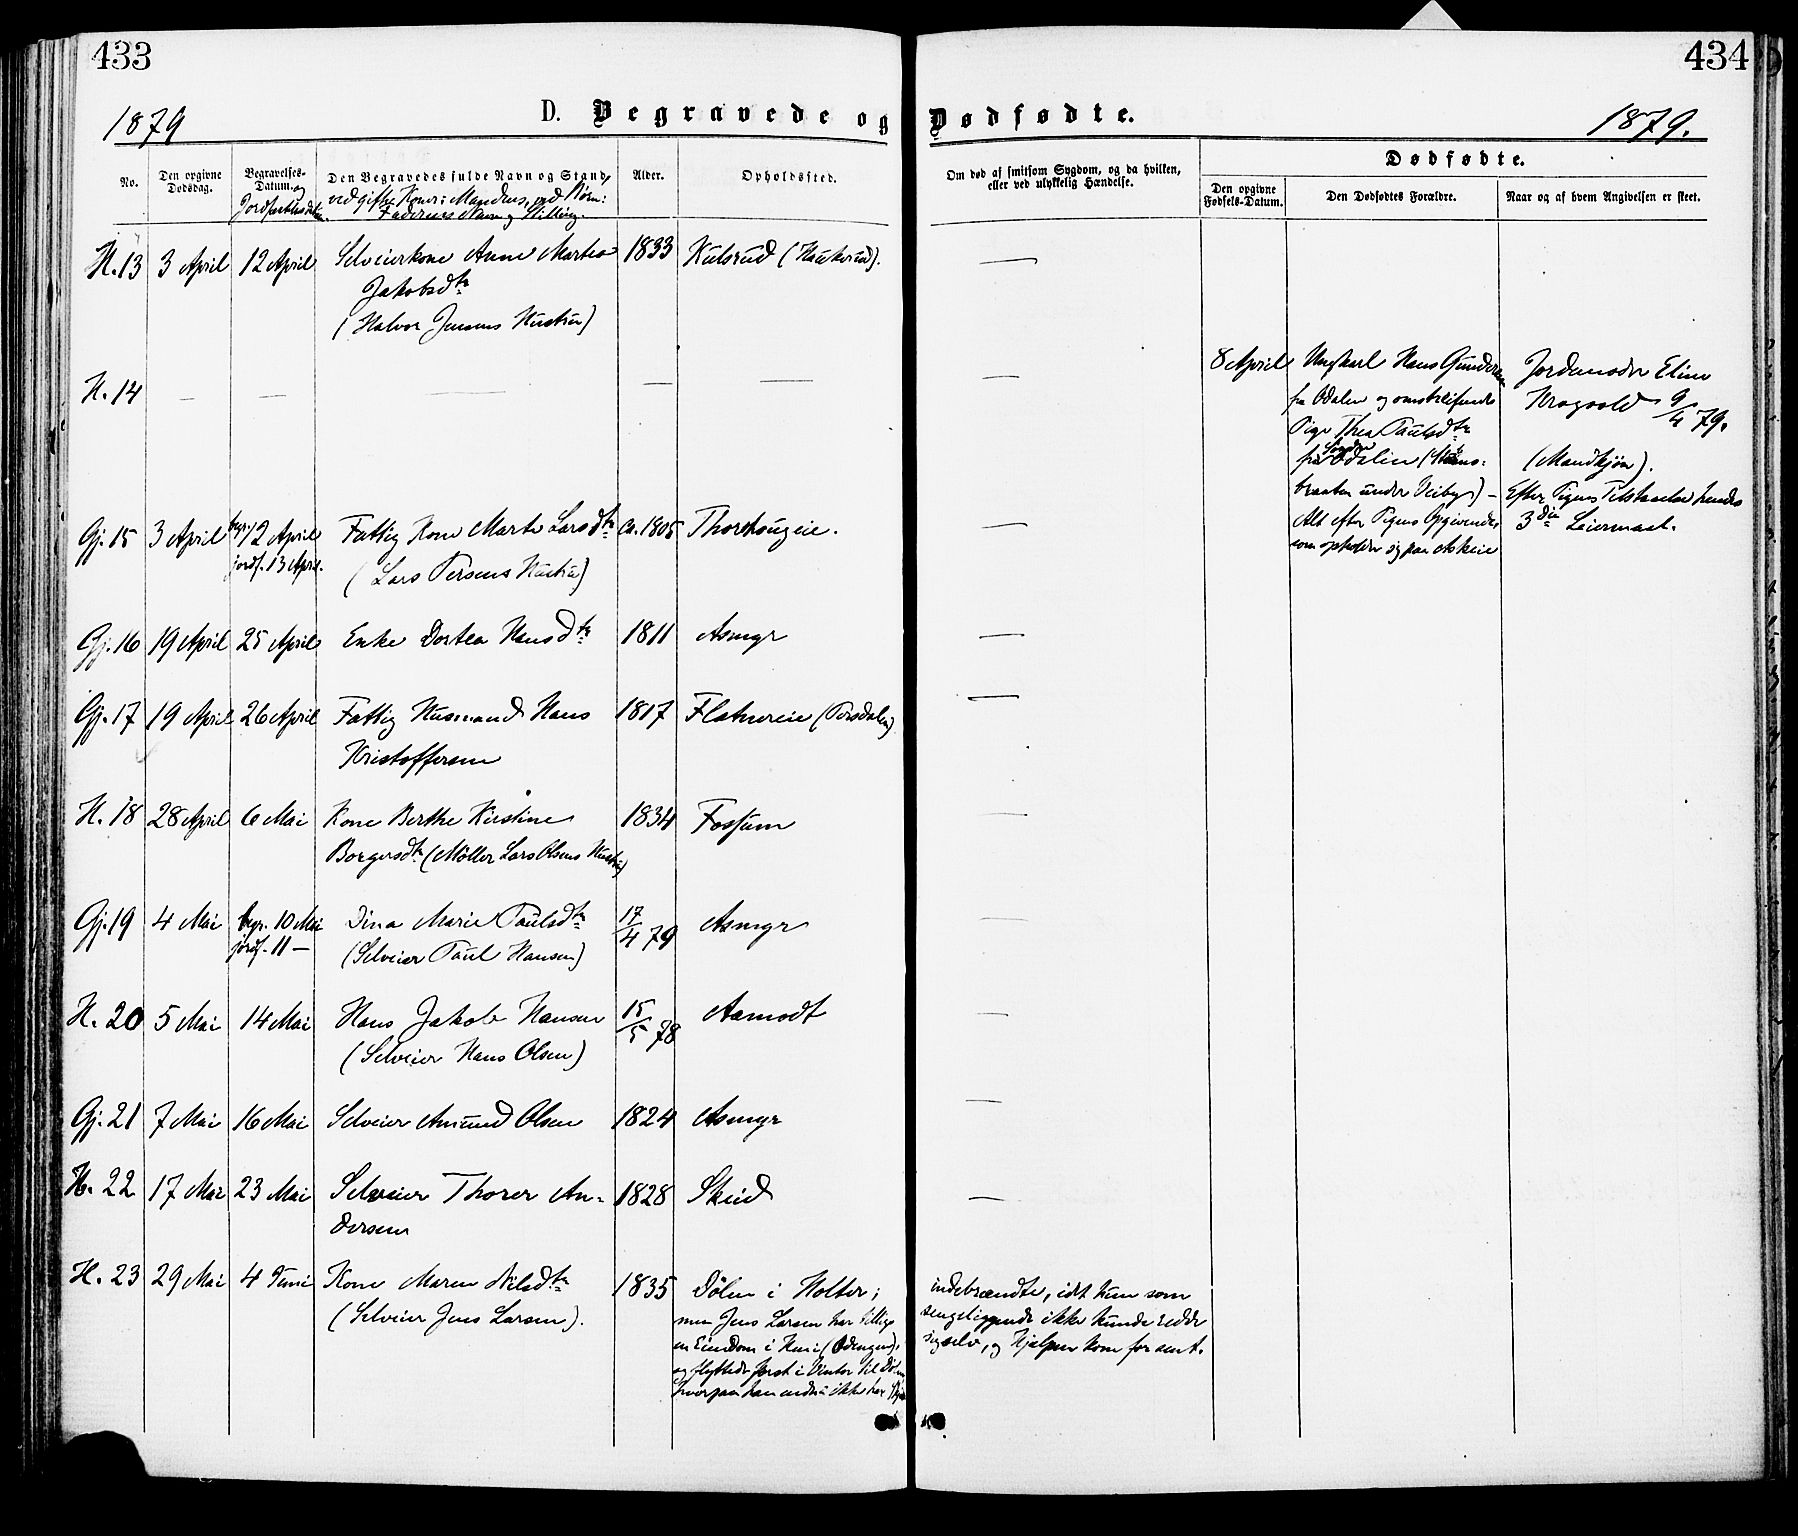 433
434
1879
D. Begravede og Dødfødte.
1879.
No.
Den opgivne
Dødsdag.
Begravelses-
Datum. og
Jordfæstelsesdatum.
Den Begravedes fulde Navn og Stand,
ved gifte Koner: Mandens, ved Børn:
Faderens Navn og Stilling.
Alder.
Opholdssted.
Om død af smitsom Sygdom, og da hvilken,
eller ved ulykkelig Hændelse.
Dødfødte.
Den opgivne
Fødsels-Datum.
Den Dødfødtes Forældre.
Naar og af hvem Angivelsen er skeet.
H. 13 3 April 12 April Selveierkone Anne Martea 1833 Kulsrud (Haukerud). —
Jakobsdtr
(Halvor Jensens Hustru)
H. 14 — — — — — —
8 April Ungkarl Hans Gundersen
fra Odalen og omstreifende
Pige Thea Paulsdtr
fra Søndre Odalen
braaten under Veiby) —
Alt efter Pigens Opgivende,
som opholder sig paa Askeie
Jordemoder Eline
Krogvold 9/4 79.
(Mandkjøn).
Efter Pigens Tilstaaelse hendes
3die Leiermaal.
Gj. 15 3 April begr. 12 April Fattig Kone Marte Larsdtr Ca. 1805 Thorshougeie. —
jordf. 13 April.
(Lars Persens Hustru)
Gj. 16 19 April 25 April Enke Dortea Hansdtr 1811 Asmyr —
Gj. 17 19 April 26 April Fattig Husmand Hans 1817 Flatnereie (Persdalen) —
Kristoffersen
H. 18 28 April 6 Mai Kone Berthe Kirstine 1834 Fossum —
Borgersdtr (Møller Lars Olsens Hustru)
Gj. 19 4 Mai begr. 10 Mai Dina Marie Paulsdtr 17/4 79 Asmyr —
jordf. 11 —
(Selveier Paul Hansen)
H. 20 5 Mai 14 Mai Hans Jakob Hansen 15/5 78 Aamodt —
(Selveier Hans Olsen)
Gj. 21 7 Mai 16 Mai Selveier Amund Olsen 1824 Asmyr —
H. 22 17 Mai 23 Mai Selveier Thorer An- 1828 Skud —
dersen
H. 23 29 Mai 4 Juni Kone Maren Nilsdtr 1835 Dølen i Holter;
(Selveier Jens Larsen).
men Jens Larsen har tillige
en Eiendom i Huni (Ødengen),
og flyttede først i Vinter til Dølen
hvorpaa han endnu ikke har
indebrændte, idet hun som
sengeliggende ikke kunde redde
sig selv, og Hjelpen kom for sent.